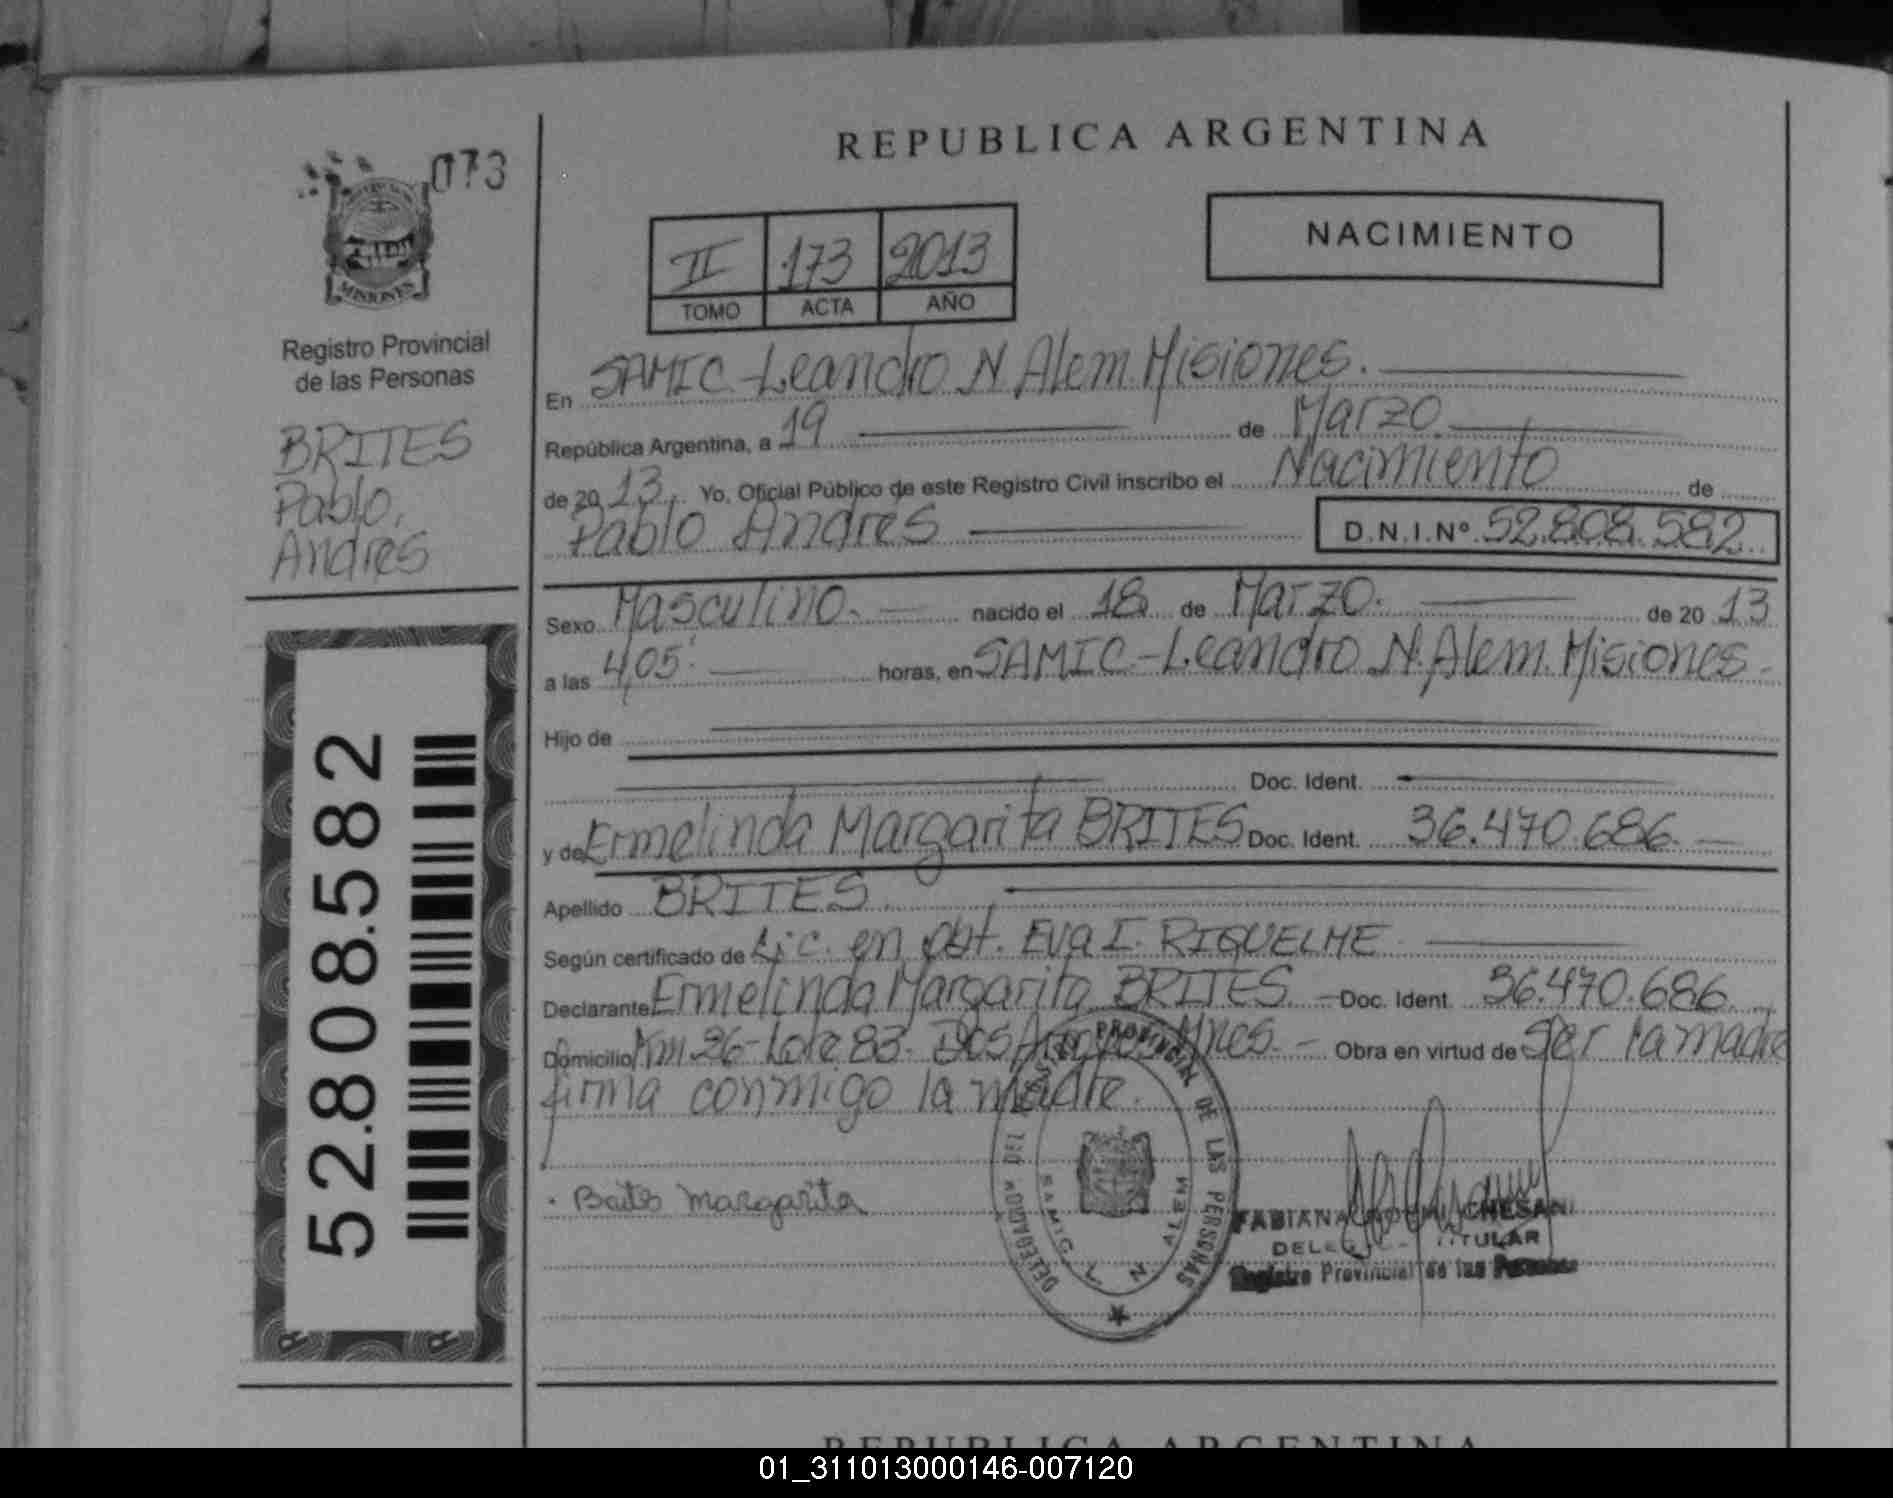 073
MISIONES
Registro Provincial
de las Personas
BRITES
Pablo,
Andrés
52.808.582
REPUBLICA ARGENTINA
NACIMIENTO
II 173 2013
TOMO ACTA AÑO
En SAMIC-Leandro N Alem Misiones.
República Argentina, a 19 de Marzo
de 20 13. Yo, Oficial Público de este Registro Civil inscribo el Nacimiento de
Pablo Andrés D.N.I.Nº 52.808.582
Sexo Masculino. nacido el 18 de Marzo. de 20 13
a las 4,05 horas, en SAMIC-Leandro N. Alem. Misiones
Hijo de
Doc. Ident.
y de Ermelinda Margarita BRITES Doc. Ident. 36.470.686
Apellido BRITES
Según certificado de Lic. en obt. Eva I. RIQUELME
Declarante Ermelinda Margarita BRITES - Doc. Ident. 36.470.686
Domicilio Km 26-Lote 83- Dos Arroyos Mnes. - Obra en virtud de Ser la madre
firma conmigo la madre.
Brites Margarita
PROVINCIAL DE LAS PERSONAS
SAMIC L N ALEM
FABIANA CHESANI
TITULAR
Registro Provincial de las Personas
REPUBLICA ARGENTINA
01_311013000146-007120